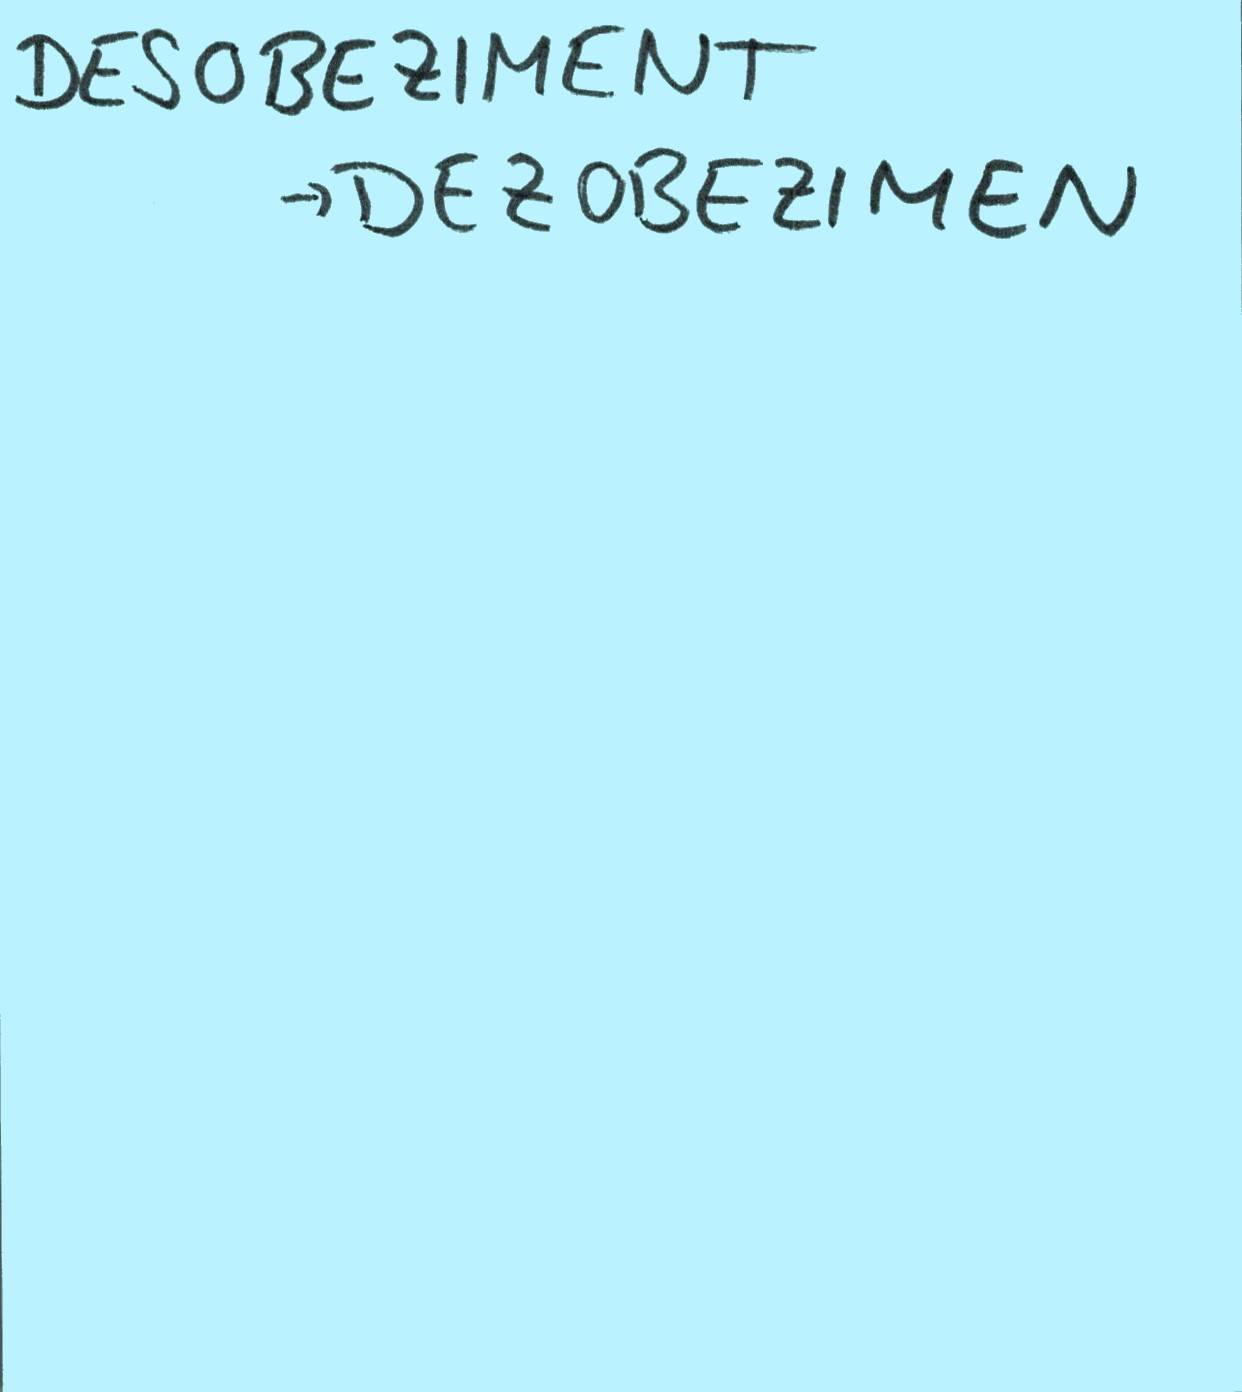 DESOBEZIMENT
→DEZOBEZIMEN